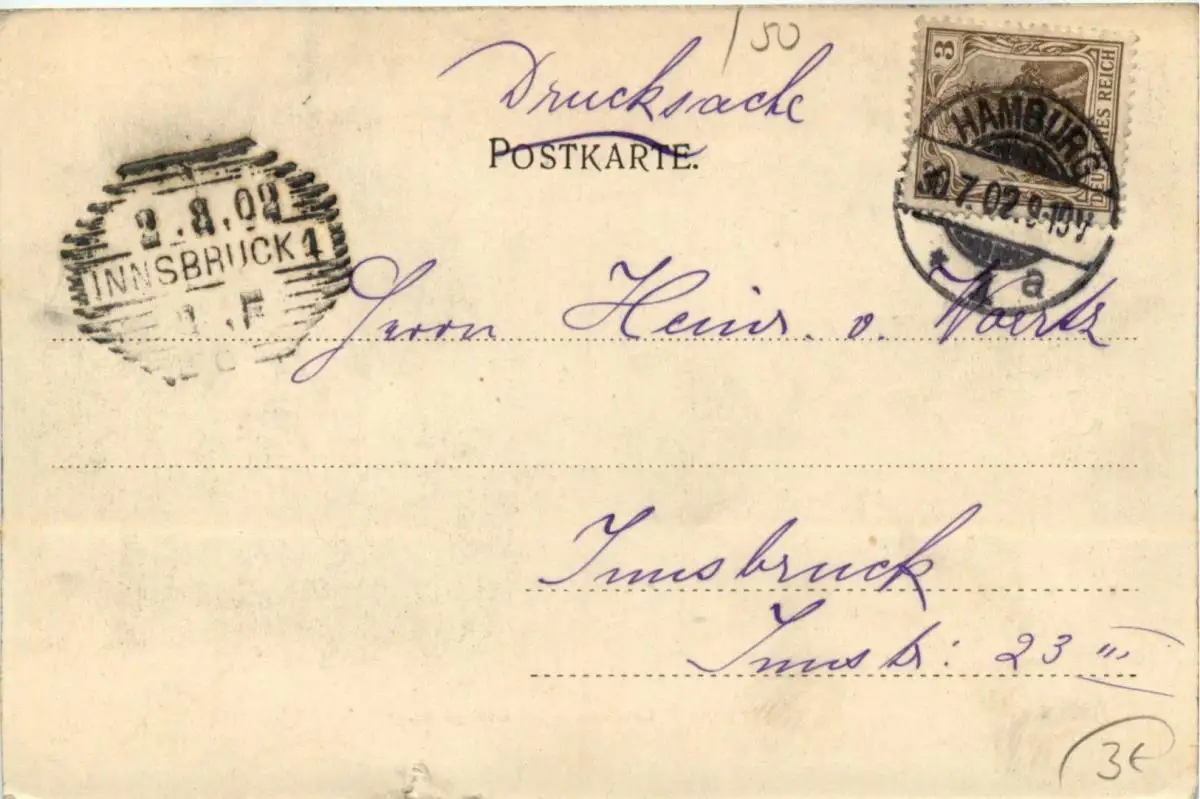 /50
Drucksache
POSTKARTE.
3
DEUTSCHES REICH
HAMBURG
30.7.02.9-10V
* 1 a
2.8.02
INNSBRUCK 1
Herrn Heinr. v. Woertz
Innsbruck
Innstr: 23 III
3€